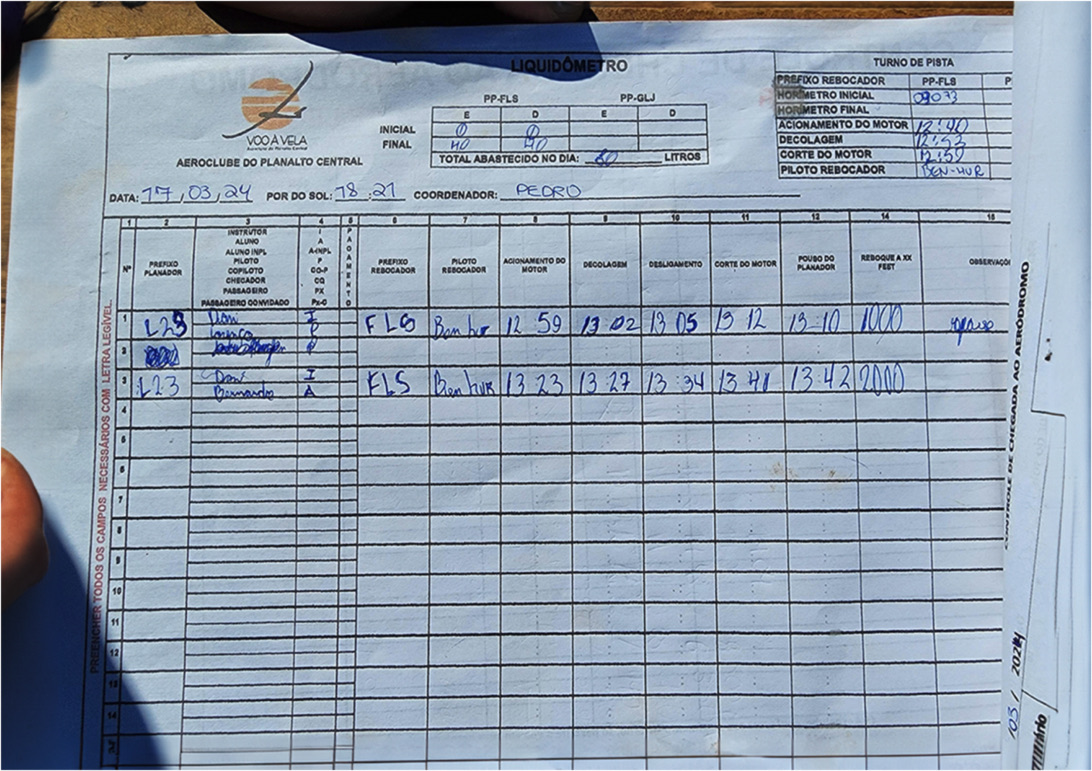 LIQUIDÔMETRO
TURNO DE PISTA
VOO A VELA
AEROCLUBE DO PLANALTO CENTRAL
PP-FLS PP-GLJ
E D E D
INICIAL 0 0
FINAL 40 40
TOTAL ABASTECIDO NO DIA: 80 LITROS
PREFIXO REBOCADOR PP-FLS
HORÍMETRO INICIAL
HORÍMETRO FINAL
ACIONAMENTO DO MOTOR 12:40
DECOLAGEM 12:53
CORTE DO MOTOR 12:59
PILOTO REBOCADOR BEN-HUR
DATA: 17,03,24 POR DO SOL: 18:21 COORDENADOR: PEDRO
1 2 3 4 5 6 7 8 9 10 11 12 14
Nº
PREFIXO PLANADOR
INSTRUTOR
ALUNO
ALUNO INPL
PILOTO
COPILOTO
CHECADOR
PASSAGEIRO
PASSAGEIRO CONVIDADO
I
A
A-INPL
P
CO-P
CQ
PX
Px-C
PAGAMENTO
PREFIXO REBOCADOR
PILOTO REBOCADOR
ACIONAMENTO DO MOTOR
DECOLAGEM
DESLIGAMENTO
CORTE DO MOTOR
POUSO DO PLANADOR
REBOQUE A XX FEET
1 L23 I FLS Ben hur 12 59 13 02 13 05 13 12 13 10 1000
P
2 P
3 L23 I FLS Ben hur 13 23 13 27 13 34 13 41 13 42 2000
Bernardo A
4
5
6
7
8
9
10
11
12
13
14
PREENCHER TODOS OS CAMPOS NECESSÁRIOS COM LETRA LEGÍVEL.
CONTROLE DE CHEGADA AO AERÓDROMO